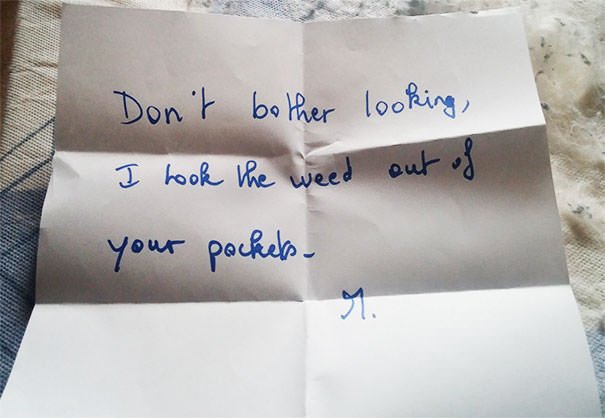 Don't bother looking,
I took the weed out of
your pockets.
M.